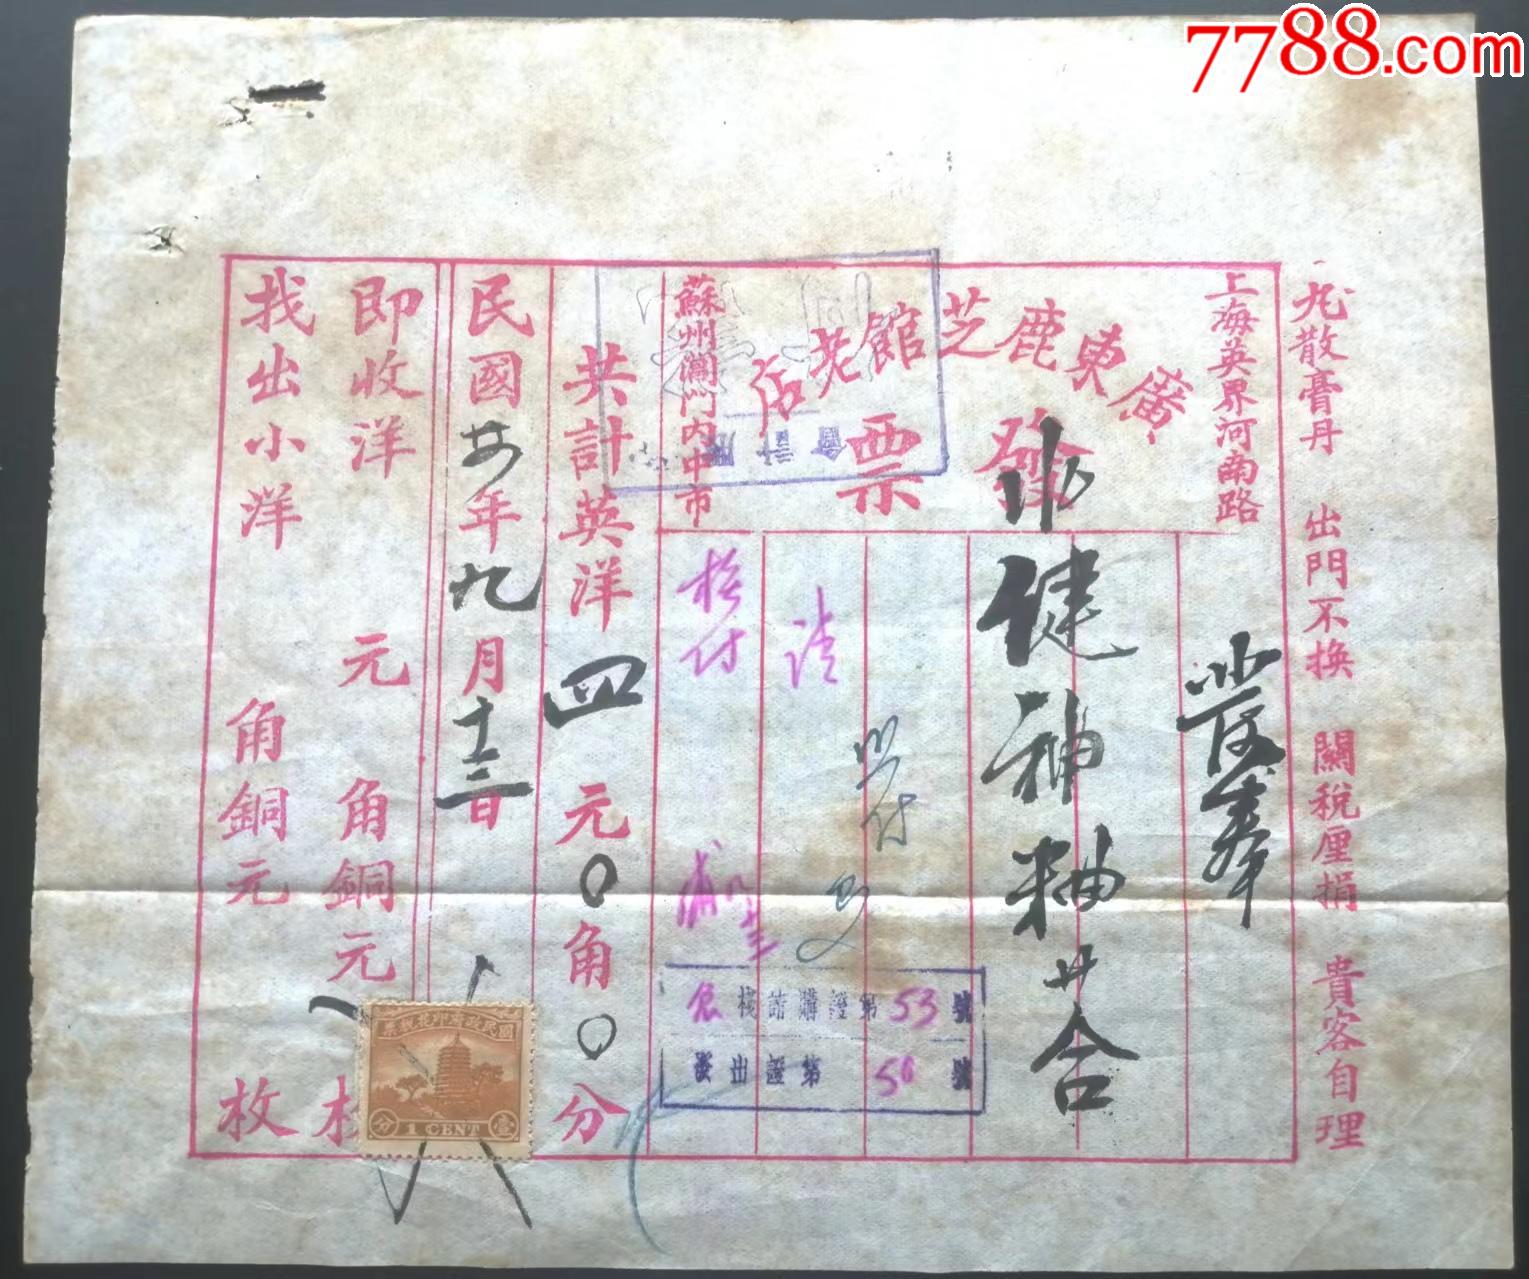 7788.com
丸散膏丹 出門不換 關稅厘捐 貴客自理
上海英界河南路
廣東鹿芝館老店
發票
蘇州閶門內中市
奉
健神
四
共計英洋四元0角0分
民國廿年九月十三日
即收洋 元 角銅元 枚
找出小洋 角銅元 枚
會計
請
核付
照付
棧請購證第53號
發出證第50號
國民政府印花稅票
壹分
1 CENT